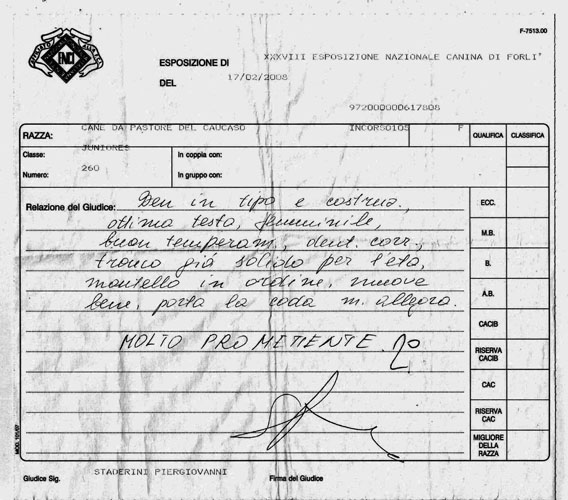 F-7513.00
ENCI
ESPOSIZIONE DI XXXVIII ESPOSIZIONE NAZIONALE CANINA DI FORLI'
DEL 17/02/2008
972000000617808
RAZZA: CANE DA PASTORE DEL CAUCASO INCORSO105 F QUALIFICA CLASSIFICA
Classe: JUNIORES In coppia con:
Numero: 260 In gruppo con:
Relazione del Giudice: Ben in tipo e costruz.,
ottima testa, femminile,
buon temperam., dent. corr.,
tronco già solido per l'età,
mantello in ordine, muove
bene, porta la coda m. allegra.
MOLTO PROMETTENTE. 2°
ECC.
M.B.
B.
A.B.
CACIB
RISERVA CACIB
CAC
RISERVA CAC
MIGLIORE DELLA RAZZA
MOD. 101/07
Giudice Sig. STADERINI PIERGIOVANNI Firma del Giudice